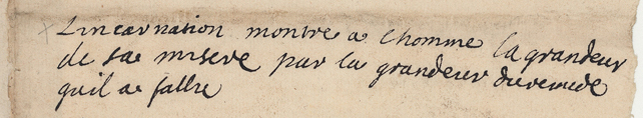 Lincarnation montre a lhomme la grandeur
de sa misere par la grandeur du remede
quil a fallu